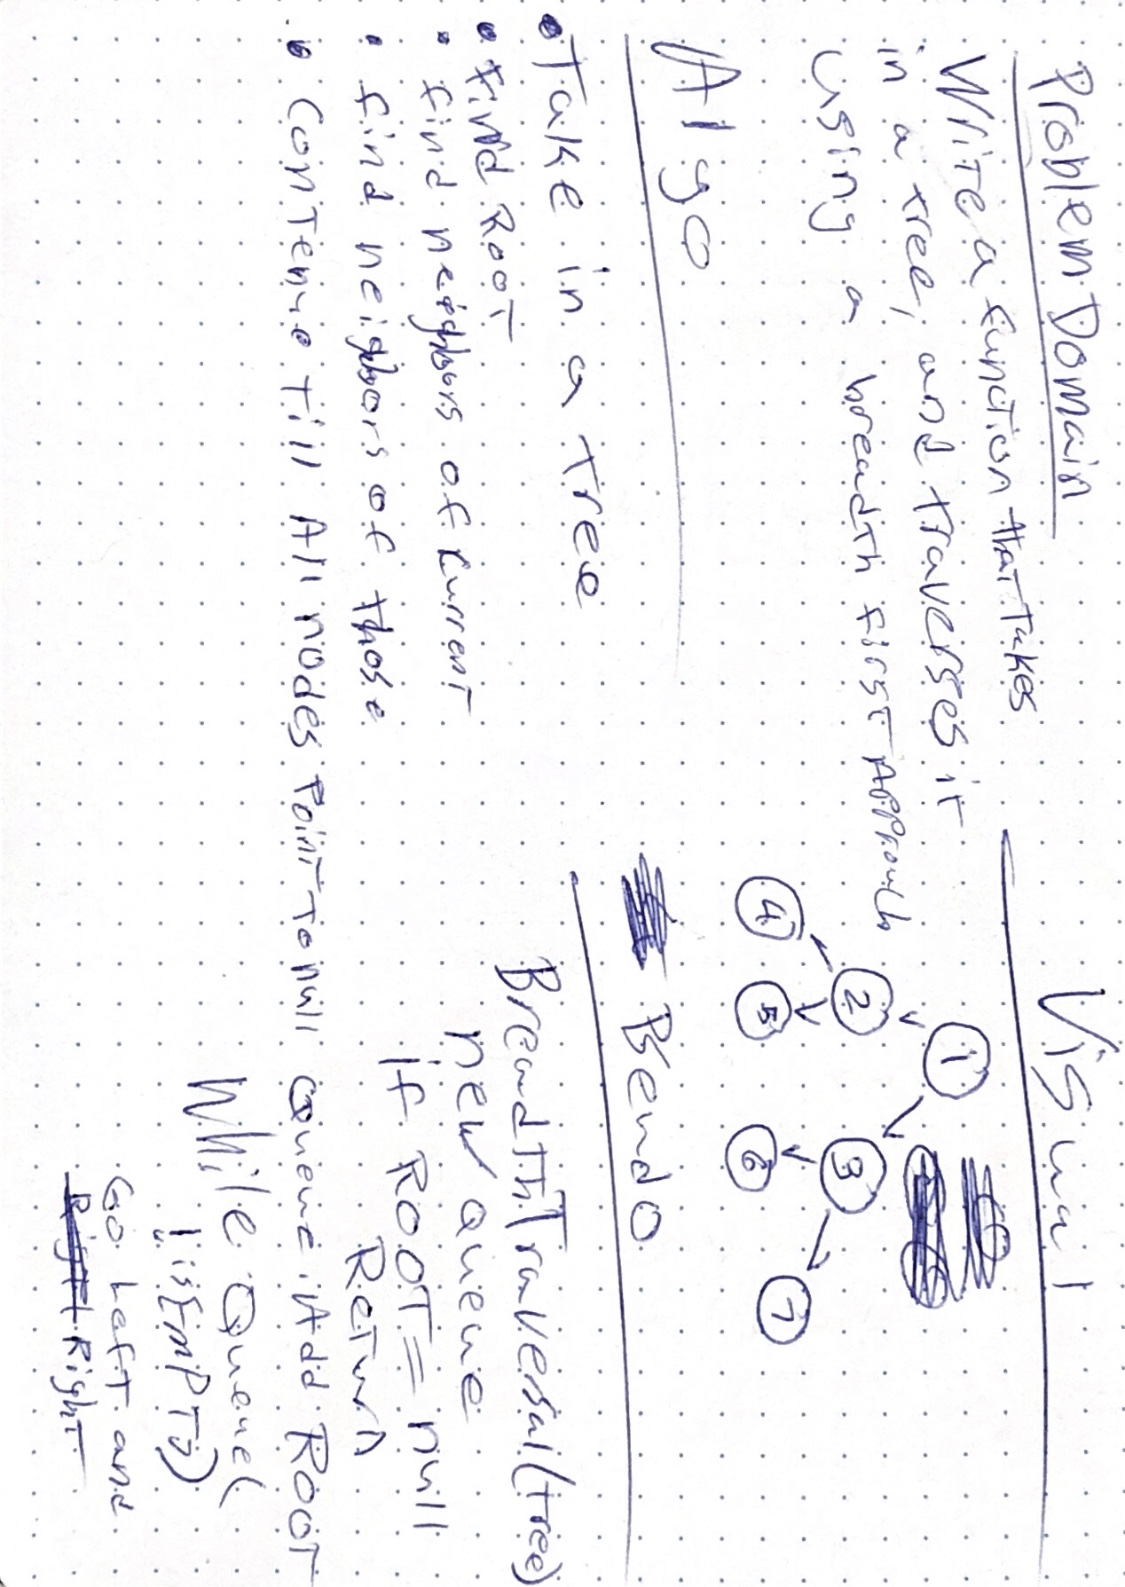 Problem Domain
Write a function that Takes
in a tree, and traverses it
using a breadth first Approach
Algo
• Take in a tree
• find Root
• find neighbors of current
• find neighbors of those
• Contenue till All nodes Point to null
Visual
1
2
3
4
5
6
7
Psendo
BreadthTraversal(tree)
new Queue
if ROOT = null
Return
Queue.Add ROOT
While Queue(
!isEmpty)
Go left and
Right Right